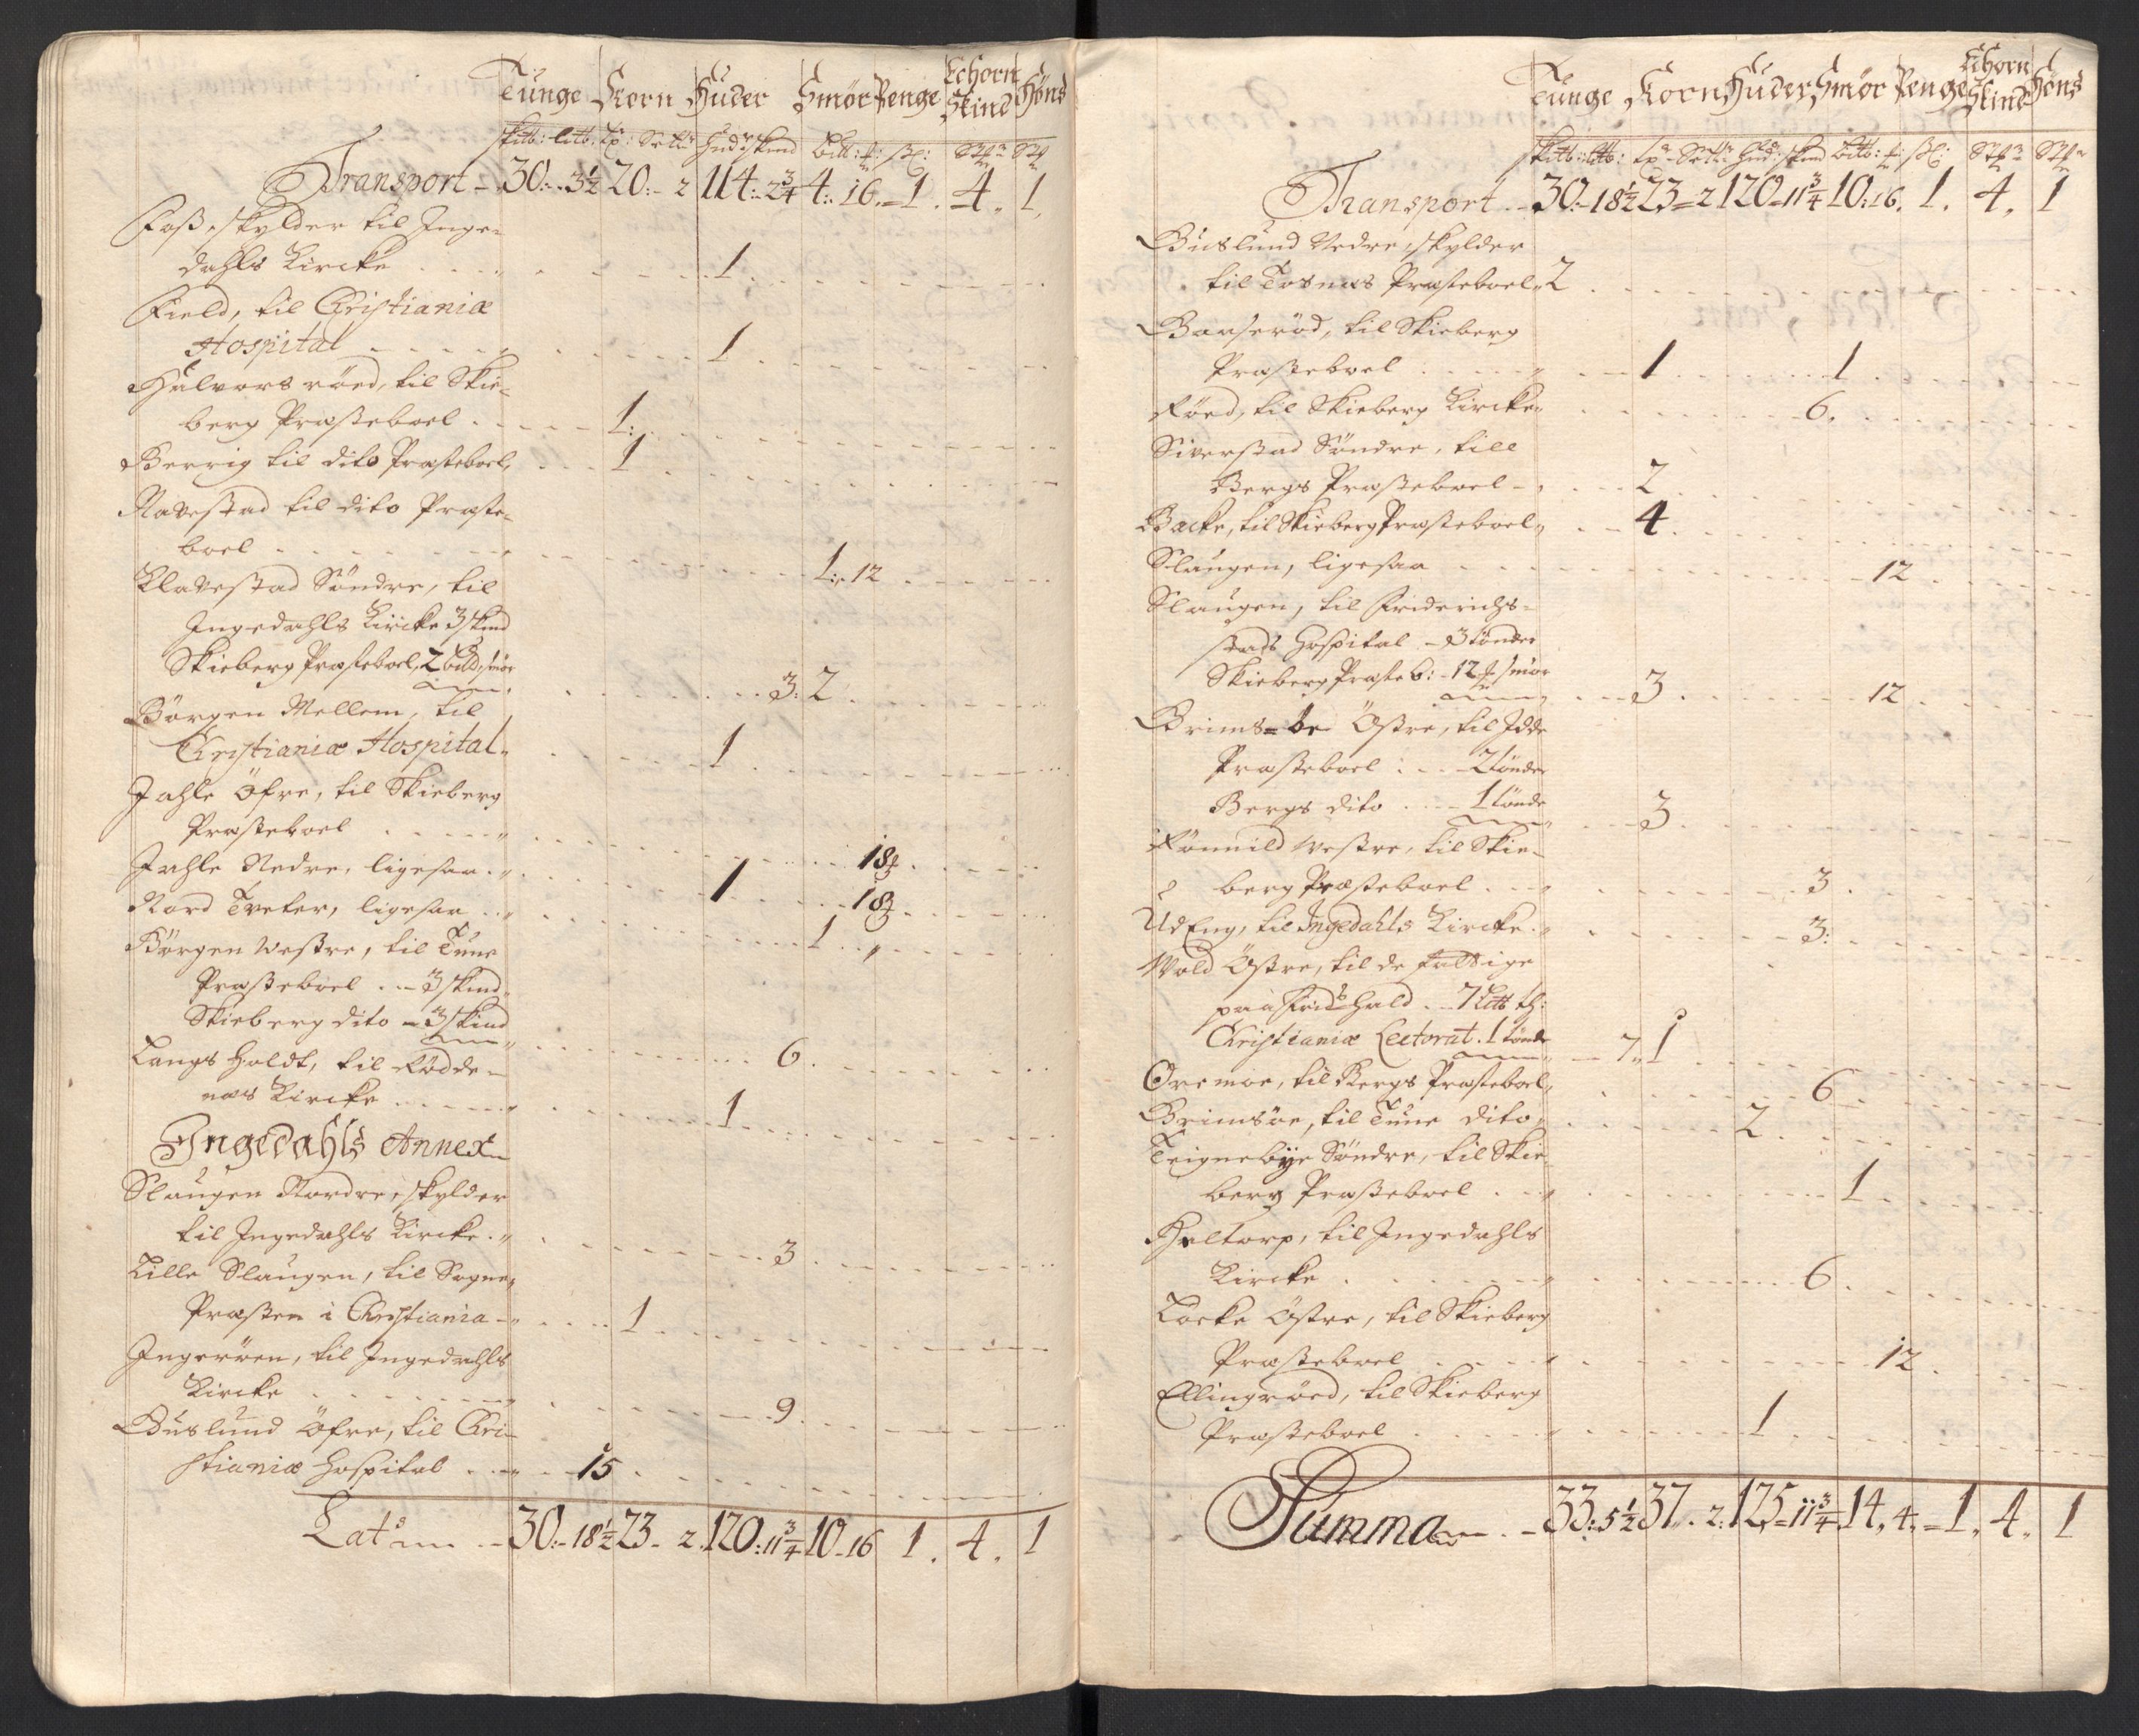 Tunge Korn Huder Smør Penge Echorn Skind Høns
Transport - 30:-3½ 20:- 2 114:-2¾ 4:-16.-1. 4. 1.
Foss, skylder til Inge-
dahls Kircke . . . 1
Field, til Christianiæ
Hospital . . . 1
Halvors röed, til Skie-
berg Præsteboel . . . 1:
Berrig til dito Præsteboel, . . . 1
Navestad til dito Præste-
boel . . . 1:-12
Klavestad Söndre, til
Ingedahls Kircke 3 skind
Skieberg Præsteboel, 2 bitb smör
. . . 3: 2
Börgen Mellem, til
Christianiæ Hospital . . . 1
Jahle Öfre, til Skieberg
Præsteboel . . . 18
Jahle Nedre, ligesaa . . . 1 . . . 18
Nord Tveter, ligesaa . . . 1 . . "
Börgen Westre, til Tune
Præsteboel . - 3 skind
Skieberg dito - 3 skind
. . . 6
Langs Holdt, til Rödde-
næs Kircke . . . 1
Ingedahls Annex
Slaugen Nordre, skylder
til Ingedahls Kircke . . . 3
Lille Slaugen, til Sogne-
Præsten i Christiania - . . . 1
Ingeröen, til Ingedahls
Kircke . . . 9
Buslund Öfre, til Chri-
stianiæ Hospital . . . 15
Lats - 30:-18½ 23- 2. 120:11¾ 10-16 1. 4. 1
Tunge Korn Huder Smør Penge Echorn Skind Høns
Transport - 30:-18½ 23-2 120-11¾ 10:16. 1. 4. 1
Buslund Nedre, skylder
til Torsnæs Præsteboel 2
Banseröd, til Skieberg
Præsteboel . . . 1 . . . 1
Röed, til Skieberg Kircke . . . 6.
Siverstad Söndre, till
Bergs Præsteboel - . . . 2
Backe, til Skieberg Præsteboel . . . 4
Slaugen, ligesaa . . . 12
Slaugen, til Friderichs-
stads Hospital - 3 tönder
Skieberg Præsteb: - 12 smör
. . . 3 . . . 12
Brims-öe Östre, til Idde
Præsteboel : - - 2 tönder
Bergs dito . . . 1 tönde
. . . 3
Römild Westre, til Skie-
berg Præsteboel . . . 3
Ud Eng, til Ingedahls Kircke . . . 3:
Wold Östre, til de fattige
paa Fridhald . - 7 Litb t:
Christianiæ Lectorat . 1 tönde
. . . 7. 1
Oremoe, til Bergs Præsteboel, . . . 6
Brimsöe, til Tune dito, . . . 2
Teignebye Söndre, til Skie-
berg Præsteboel . . . 1
Heltorp, til Ingedahls
Kircke . . . 6
Locke Östre, til Skieberg
Præsteboel . . . 12
Ellingröed, til Skieberg
Præsteboel . . . 1
Summa - 33:5½ 37. 2. 125-11¾ 14. 4.-1. 4. 1